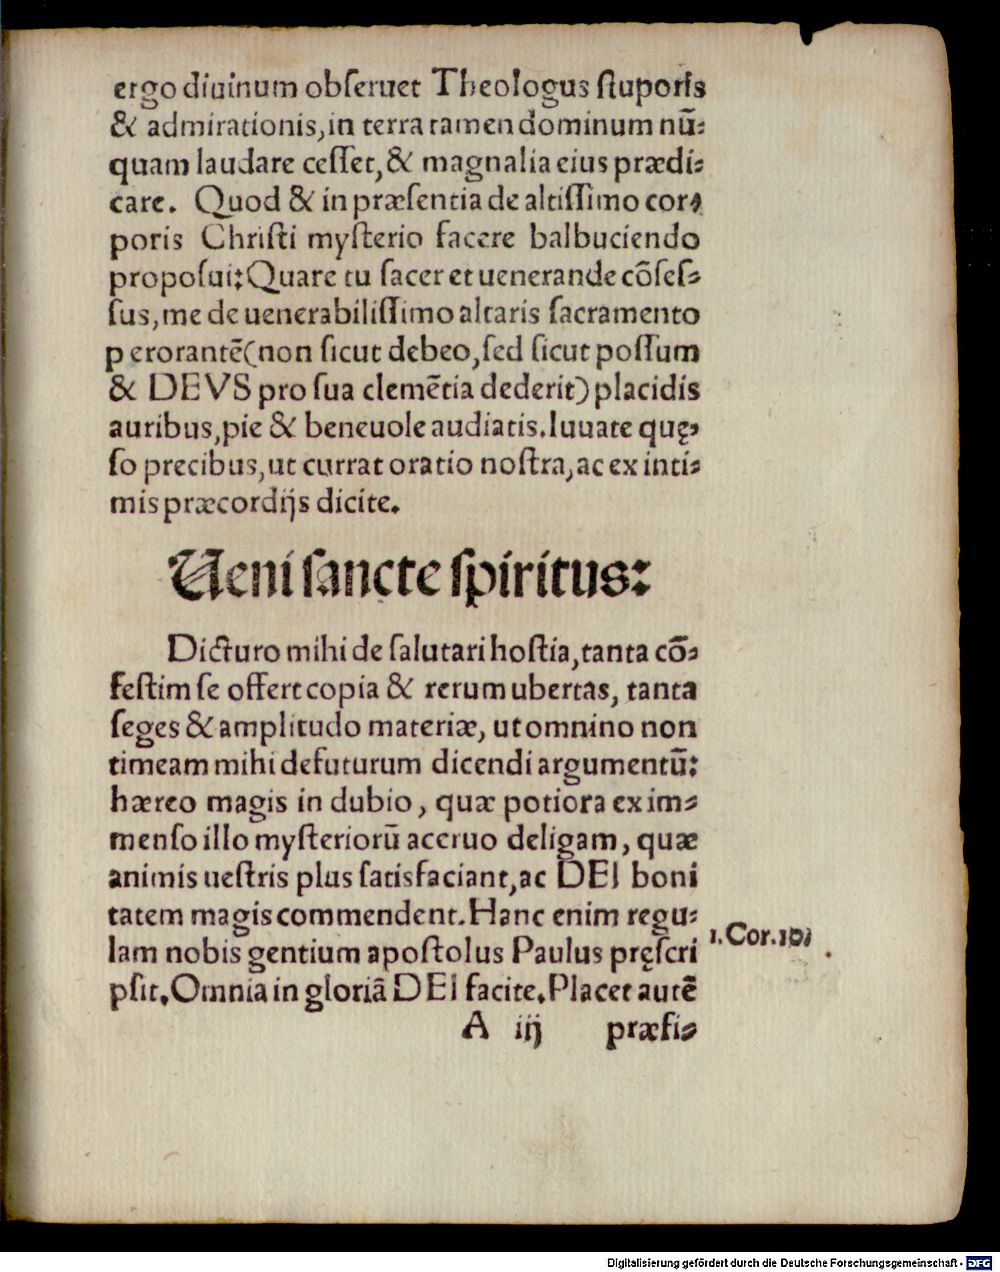 ergo diuinum obſeruet Theologus ſtuporis
& admirationis, in terra tamen dominum nū⸗
quam laudare ceſſet, & magnalia eius prædi⸗
care. Quod & in præſentia de altiſſimo cor⸗
poris Chriſti myſterio facere balbuciendo
propoſui: Quare tu ſacer et uenerande cōſeſ⸗
ſus, me de uenerabiliſſimo altaris ſacramento
perorantē(non ſicut debeo, ſed ſicut poſſum
& DEVS pro ſua clemētia dederit) placidis
auribus, pie & beneuole audiatis. Iuuate quę⸗
ſo precibus, ut currat oratio noſtra, ac ex inti⸗
mis præcordijs dicite.
Ueni ſancte ſpiritus:
Dicturo mihi de ſalutari hoſtia, tanta cō⸗
feſtim ſe offert copia & rerum ubertas, tanta
ſeges & amplitudo materiæ, ut omnino non
timeam mihi defuturum dicendi argumentū:
hæreo magis in dubio, quæ potiora ex im⸗
menſo illo myſteriorū aceruo deligam, quæ
animis ueſtris plus ſatisfaciant, ac DEI boni
tatem magis commendent. Hanc enim regu⸗
lam nobis gentium apoſtolus Paulus pręſcri
1. Cor. 10.
pſit, Omnia in gloriā DEI facite. Placet autē
A iij præfi⸗
Digitalisierung gefördert durch die Deutsche Forschungsgemeinschaft - DFG